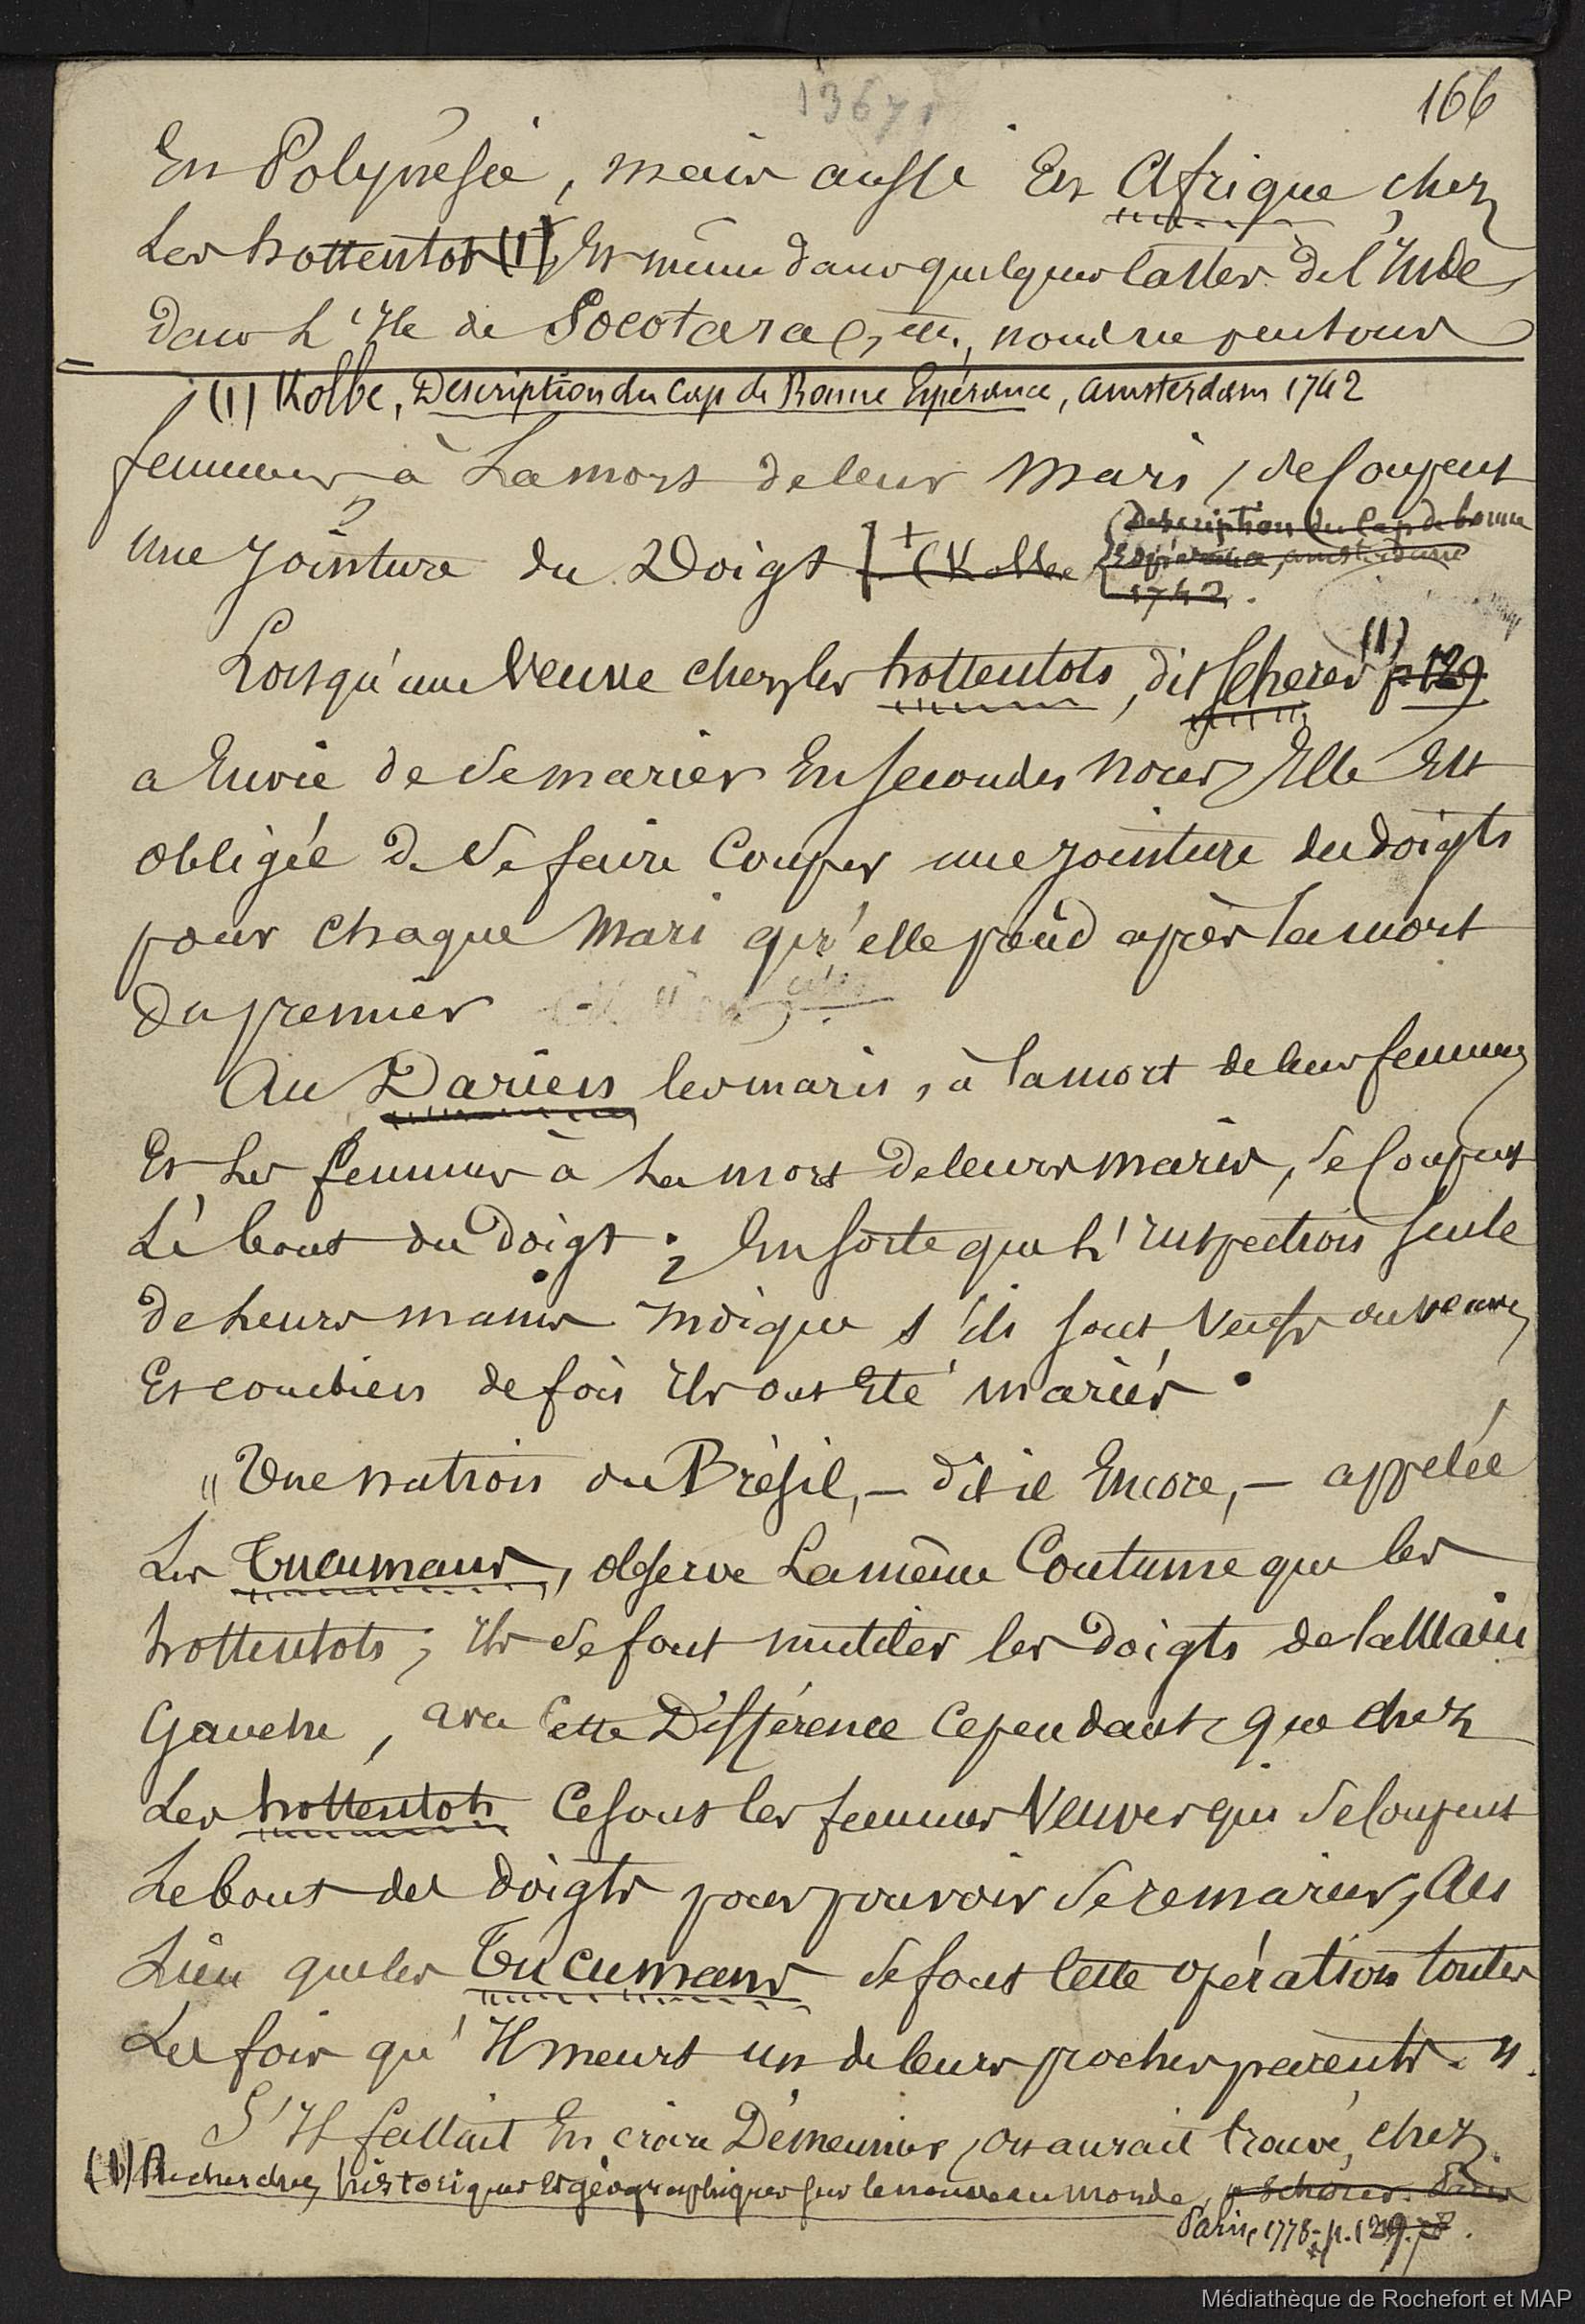 1367
166
En Polynésie, mais aussi En Afrique chez
Les hottentots (1) Et même dans quelques Castes de l'Inde,
Dans L'Ile de Socotara, etc.,
(1) Kolbe, Description du Cap de Bonne Espérance, Amsterdam 1742
femmes à La mort de leur Mari, se Coupent
une Jointure du Doigt + (Kolbe Description du Cap de bonne
Espérance, amsterdam
1742.
Lorsqu'une Veuve chez les hottentots, dit Scherer (1) p 129
a Envie de se marier En secondes noces, Elle Est
obligée De se faire Couper une jointure des doigts
pour chaque Mari qu'elle prend après la mort
Du premier
Au Darien les maris, à la mort de leurs femmes
Et Les femmes à La mort de leurs maris, se Coupent
Le bout du Doigt ; En sorte que L'Inspection seule
de Leurs mains Indique s'ils sont Veufs ou veuves
Et combien de fois Ils ont Eté mariés.
" Une nation du Brésil, — dit-il Encore, — appelée
Les Tucumans, observe La même Coutume que les
hottentots ; Ils se font mutiler les Doigts de la Main
Gauche, avec Cette Différence Cependant que chez
Les hottentots Ce sont les femmes Veuves qui se Coupent
Le bout des doigts pour pouvoir se remarier, Au
Lieu que les Tucumans se font Cette opération toutes
Les fois qu'Il meurt un de leurs proches parents. "
S'Il fallait En croire Démeunier, on aurait trouvé, chez
(1) Recherches historiques et géographiques sur le nouveau monde, p Scherer. Paris
Paris, 1778 - p. 129.